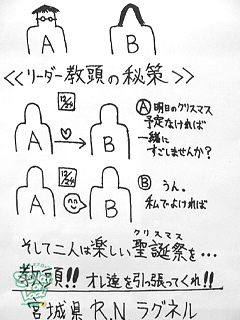 A B
<<リーダー教頭の秘策>>
12/24
A → B
Ⓐ明日のクリスマス
予定なければ
一緒に
すごしませんか?
12/24
A B
Ⓑうん。
私でよければ
クリスマス
そして二人は楽しい聖誕祭を…
教頭!!オレ達を引っ張ってくれ!!
宮城県 R.N ラグネル